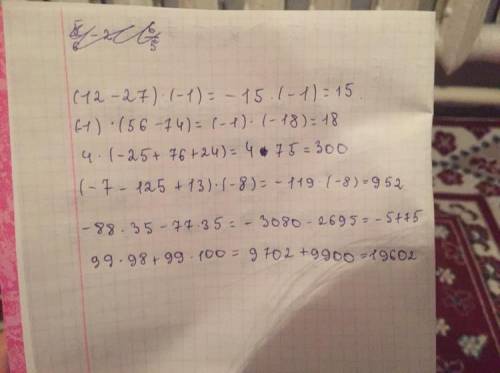 (12 - 27) · (-1) = - 15 · (-1) = 15.
(-1) · (56 - 74) = (-1) · (-18) = 18
4 · (-25 + 76 + 24) = 4 · 75 = 300
(-7 - 125 + 13) · (-8) = - 119 · (-8) = 952
-88 · 35 - 77 · 35 = - 3080 - 2695 = - 5775
99 · 98 + 99 · 100 = 9702 + 9900 = 19602